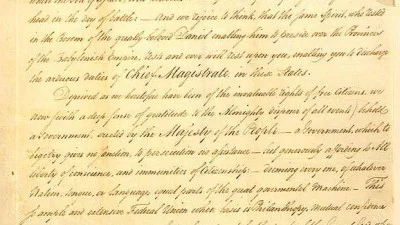 head in the day of battle: — and we rejoice to think, that the same Spirit, who rested
in the Bosom of the greatly beloved Daniel enabling him to preside over the Provinces
of the Babylonish Empire, rests and ever will rest upon you, enabling you to discharge
the arduous duties of Chief Magistrate in these States.
Deprived as we heretofore have been of the invaluable rights of free Citizens, we
now (with a deep sense of gratitude to the Almighty disposer of all events) behold
a Government, erected by the Majesty of the People — a Government, which to
bigotry gives no sanction, to persecution no assistance — but generously affording to All
liberty of conscience, and immunities of Citizenship: — deeming every one, of whatever
Nation, tongue, or language equal parts of the great governmental Machine: — This
so ample and extensive Federal Union whose basis is Philanthropy, Mutual confidence